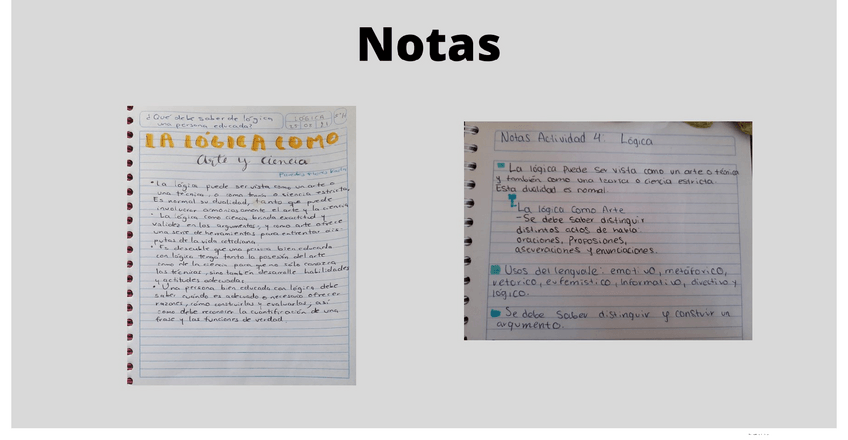 Notas
¿Qué debe saber de lógica
una persona educada?
LÓGICA
LA LÓGICA COMO
Arte y ciencia
• La lógica puede ser vista como un arte o
una técnica, o como teoría o ciencia estricta,
Es normal su dualidad, tanto que puede
involucrar armoniosamente el arte y la ciencia
• La lógica como ciencia brinda exactitud y
validez en los argumentos, y como arte ofrece
una serie de herramientas para enfrentar
putas de la vida cotidiana
• Es deseable que una persona bien educada
con lógica tenga tanto la posesión del arte
como de la ciencia para que no sólo conozca
las técnicas, sino también desarrolle habilidades
y actitudes adecuadas
• Una persona bien educada con lógica debe
saber cuándo es adecuado o necesario ofrecer
razones, cómo construirlas y evaluarlas, así
como debe reconocer la cuantificación de una
frase y las funciones de verdad.
Notas Actividad 4: Lógica
La lógica Puede ser vista como un arte o técnica
y también como una teoría o ciencia estricta.
Esta dualidad es normal.
La lógica Como Arte
- Se debe saber distinguir
distintos actos de habla:
oraciones, Proposiones,
aseveraciones y enunciaciones.
Usos del lenguaje: emotivo, metáforico,
retorico, eufemistico, Informativo, directivo y
lógico.
Se debe Saber distinguir y construir un
argumento.